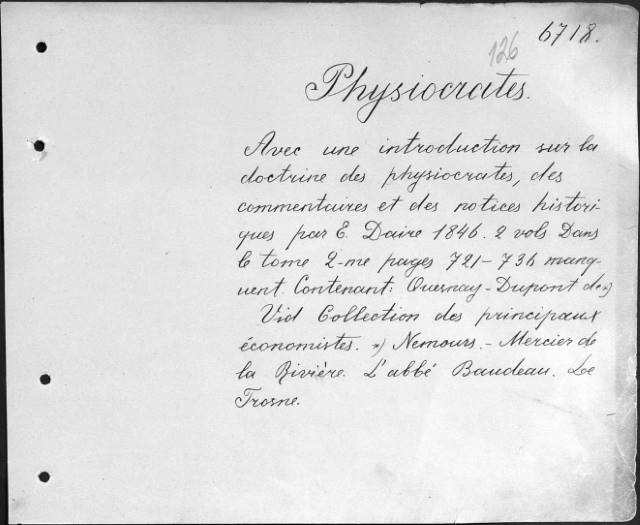 6718.
126
Physiocrates.
Avec une introduction sur la
doctrine des physiocrates, des
commentaires et des notices histori-
ques par E. Daire 1846. 2 vols Dans
le tome 2-me pages 721-736 manq-
uent. Contenant: Quesnay-Dupont de *)
Vid Collection des principaux
économistes. *) Nemours. - Mercier de
la Rivière. L'abbé Baudeau. Le
Trosne.